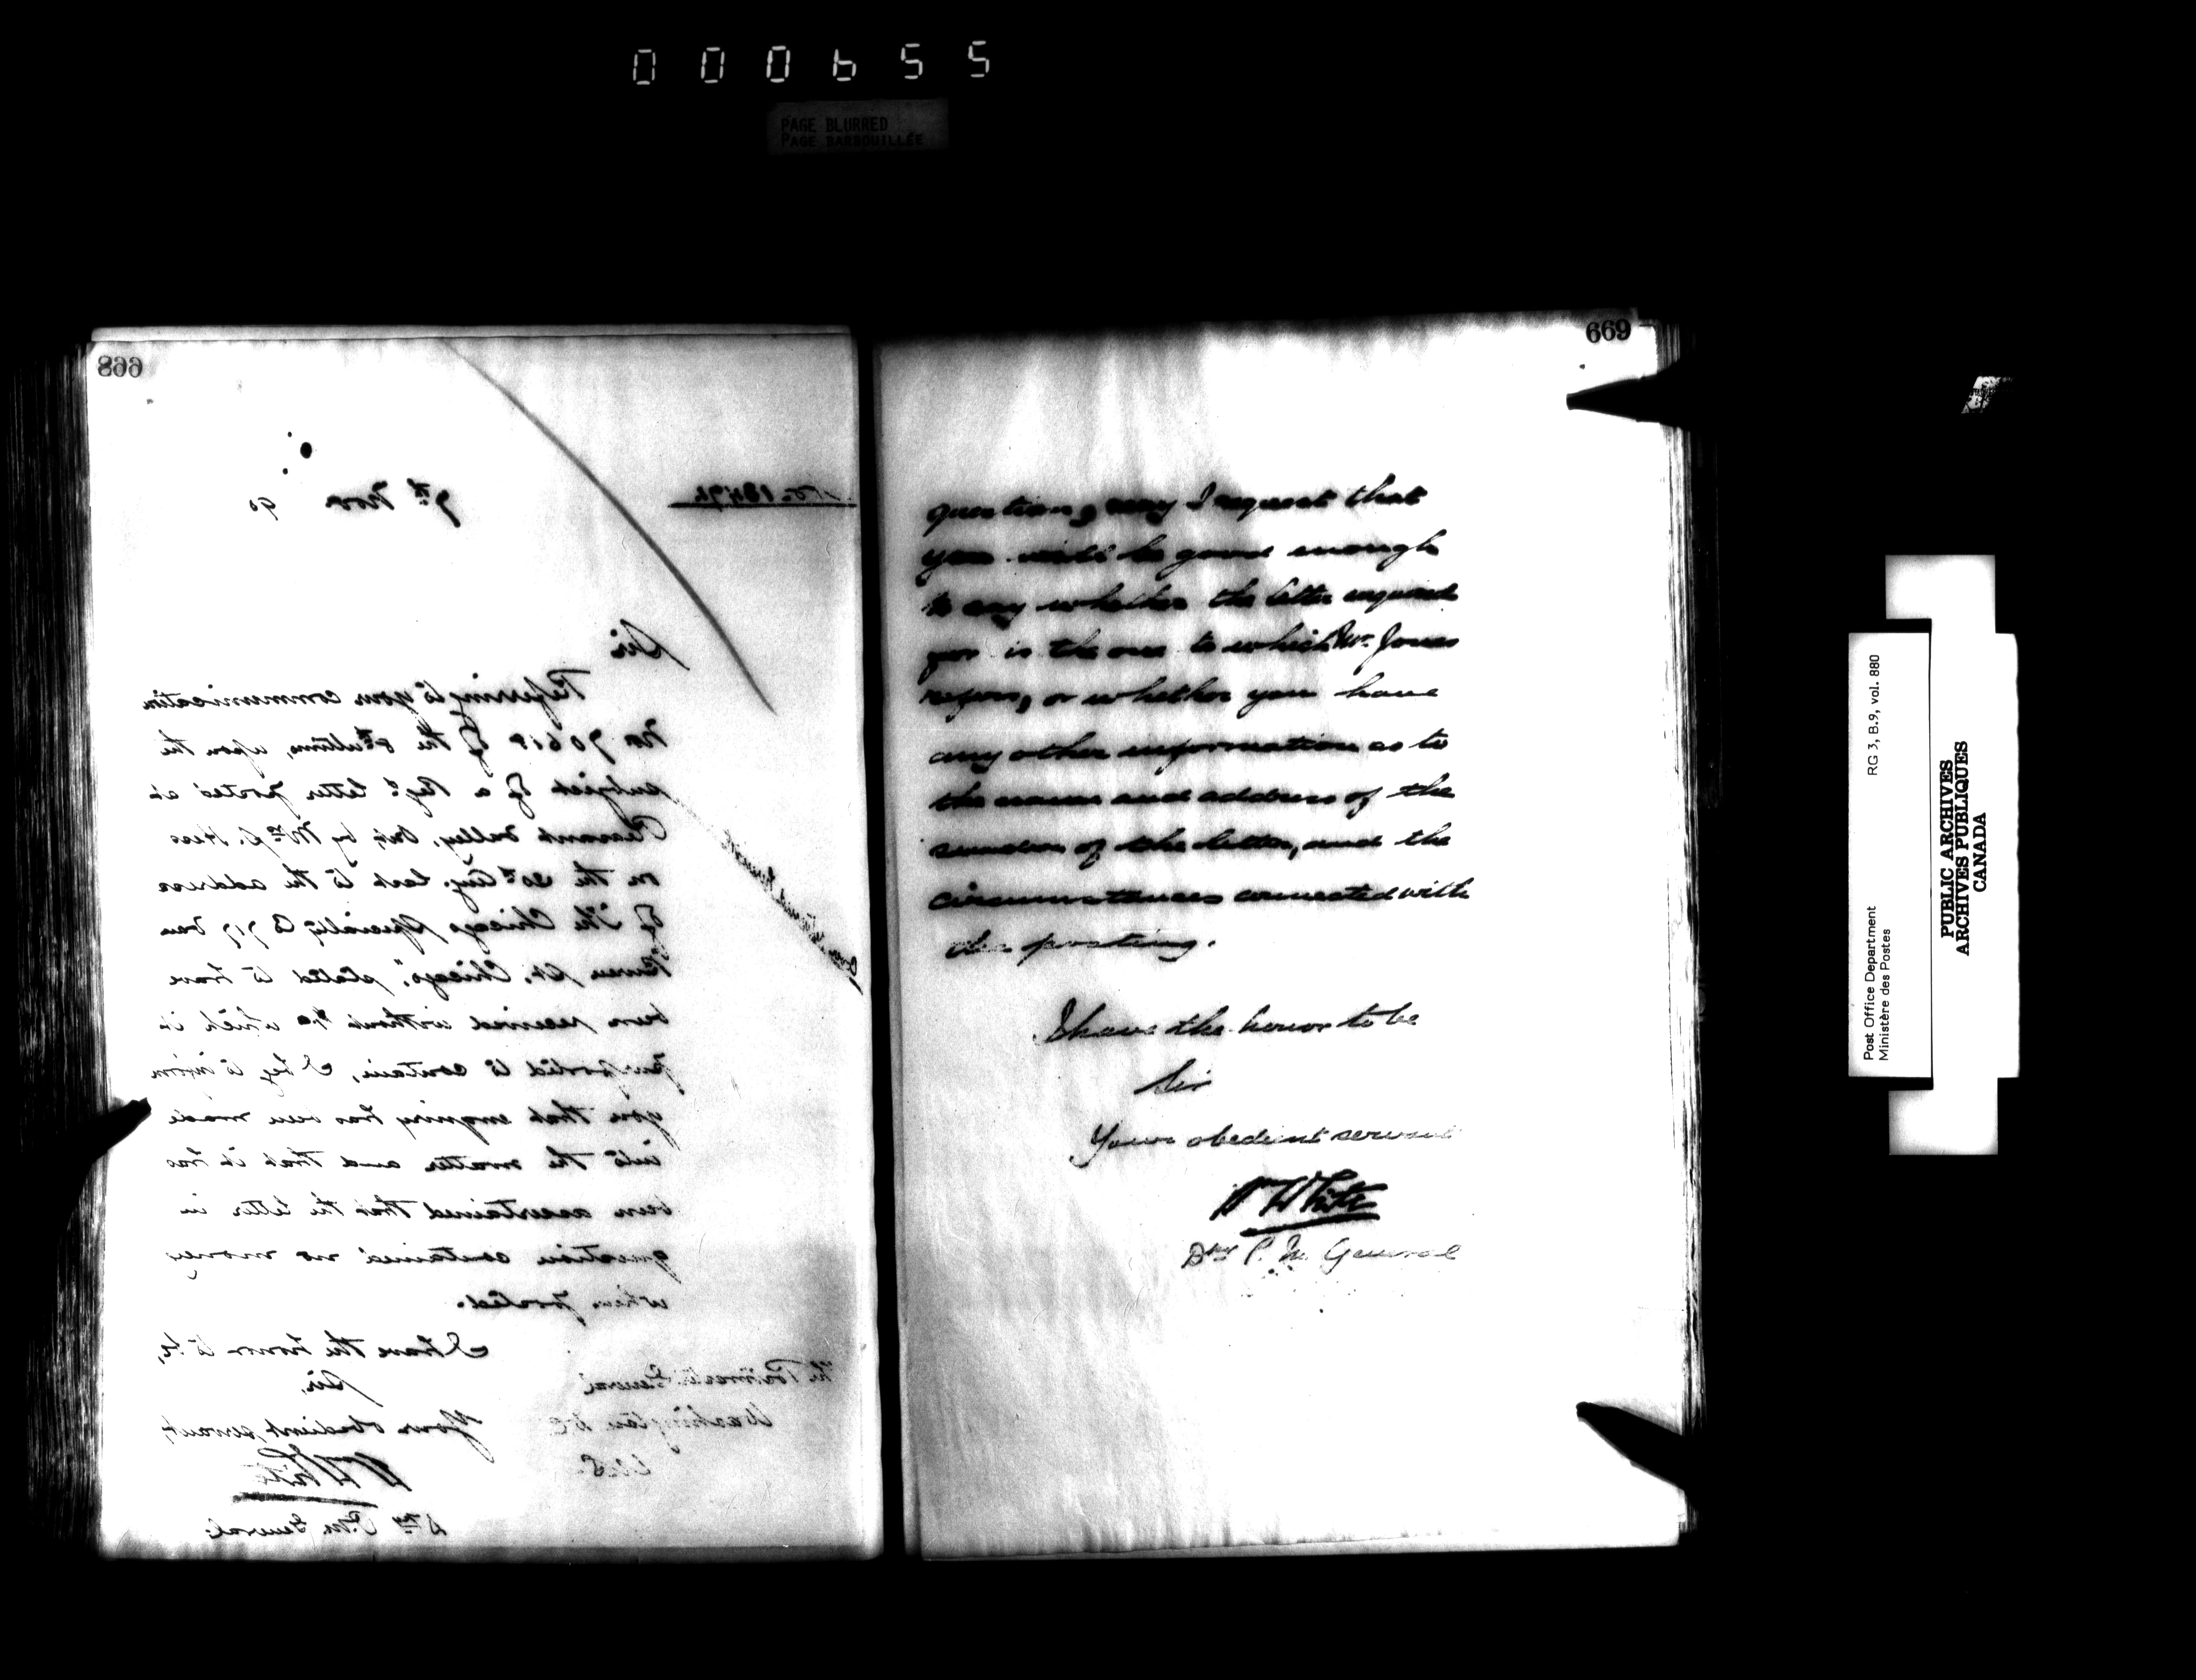 000655
PAGE BLURRED
PAGE BARBOUILLÉE
668
No. 13492
7th Nov 90
Sir
Referring to your communication
No 70618 of the 8th ultimo, upon the
subject of a Regd letter posted at
Pleasant Valley, Ont, by Mrs J. Hess
on the 20th Aug. last to the address
of "The Chicago Specialty Co 717 Van
Buren St. Chicago", stated to have
been received without the which it
purported to contain, I beg to inform
you that enquiry has been made
into the matter and that it has
been ascertained that the letter in
question contained no money
when posted.
I have the honor to be,
Sir,
Your obedient servant,
W White
Dty P.M. General
The Postmaster General
Washington D.C.
U.S.
669
question, may I request that
you will be good enough
to say whether the letter enquired
for is the one to which Mr. Jones
refers, or whether you have
any other information as to
the name and address of the
sender of the letter, and the
circumstances connected with
its posting.
I have the honor to be
Sir
Your obedient servant
W White
Dty P. M. General
Post Office Department
Ministère des Postes
RG 3, B.9, vol. 880
PUBLIC ARCHIVES
ARCHIVES PUBLIQUES
CANADA